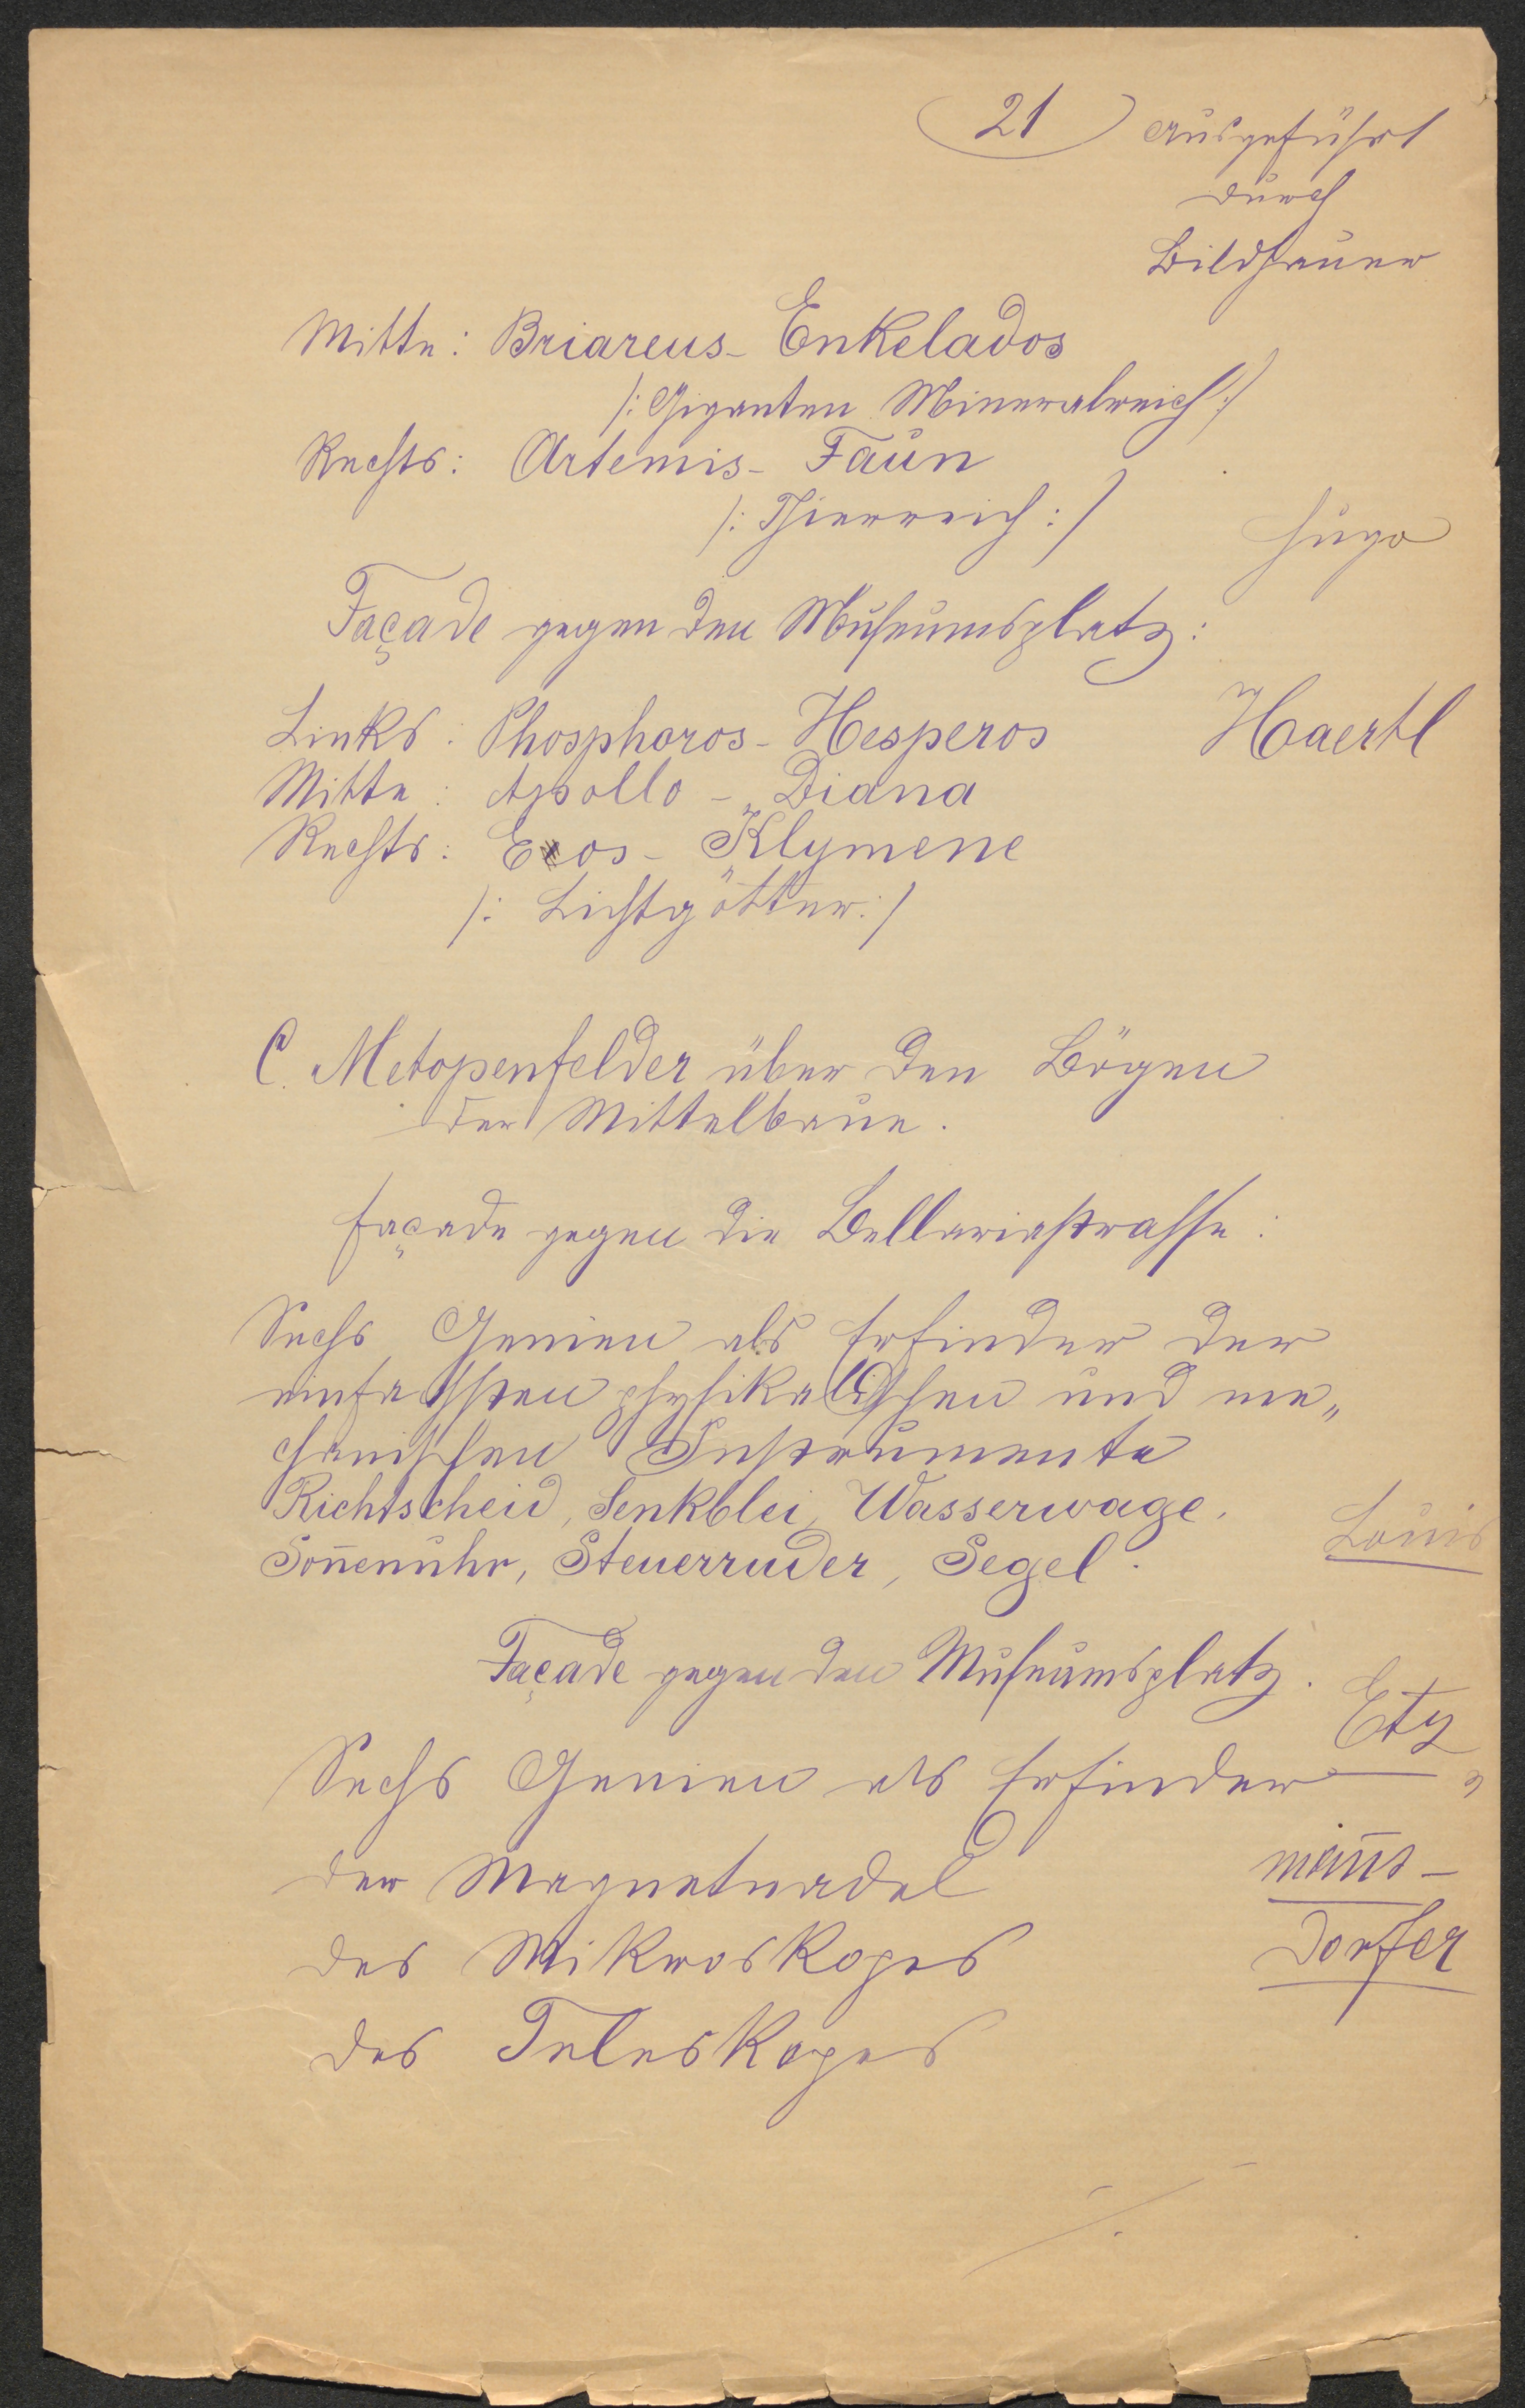 21
ausgeführt
durch
Bildhauer
Mitte: Briareus - Enkelados
/: Giganten Mineralreich :/
Rechts: Artemis - Faun
/: Thierreich :/
Hugo
Façade gegen den Museumsplatz:
Links: Phosphoros - Hesperos
Haertl
Mitte: Apollo - Diana
Rechts: Eos - Klymene
/: Lichtgötter :/
C. Metopenfelder über den Bögen
der Mittelbaue.
Façade gegen die Bellariastrasse:
Sechs Genien als Erfinder der
einfachsten physikalischen und me„
chanischen Instrumente
Richtscheid, Senkblei, Wasserwage,
Soñenuhr, Steuerruder, Segel.
Louis
Façade gegen den Museumsplatz.
Etz
Sechs Genien als Erfinder
der Magnetnadel
mañs-
des Mikroskopes
dorfer
des Teleskopes
./.